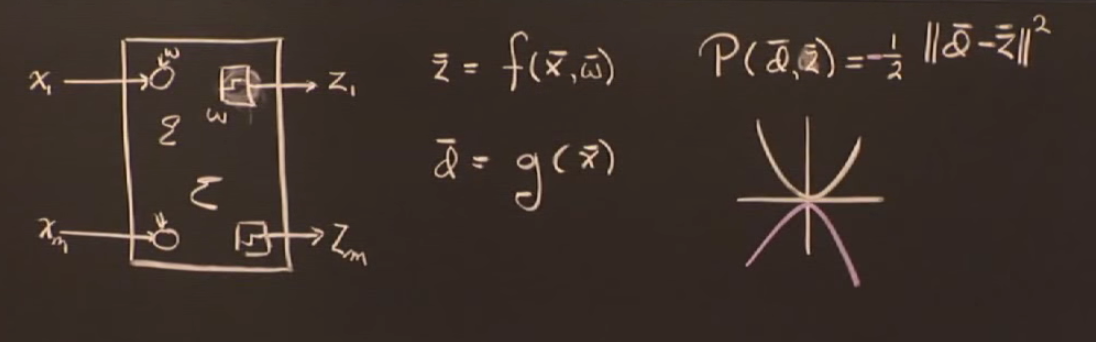 x₁ w z₁
w
Σ
Σ
xₘ zₘ
z̄ = f(x̄, w̄)
d̄ = g(x̄)
P(d̄, z̄) = -½ ‖d̄ - z̄‖²